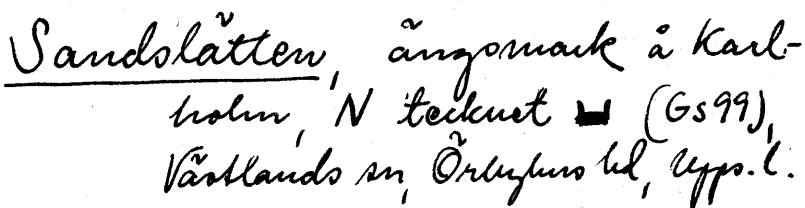 Sandslätten, ängsmark å Karl-
holm, N tecknet (Gs99),
Västlands sn, Örbyhus hd, Upps. l.